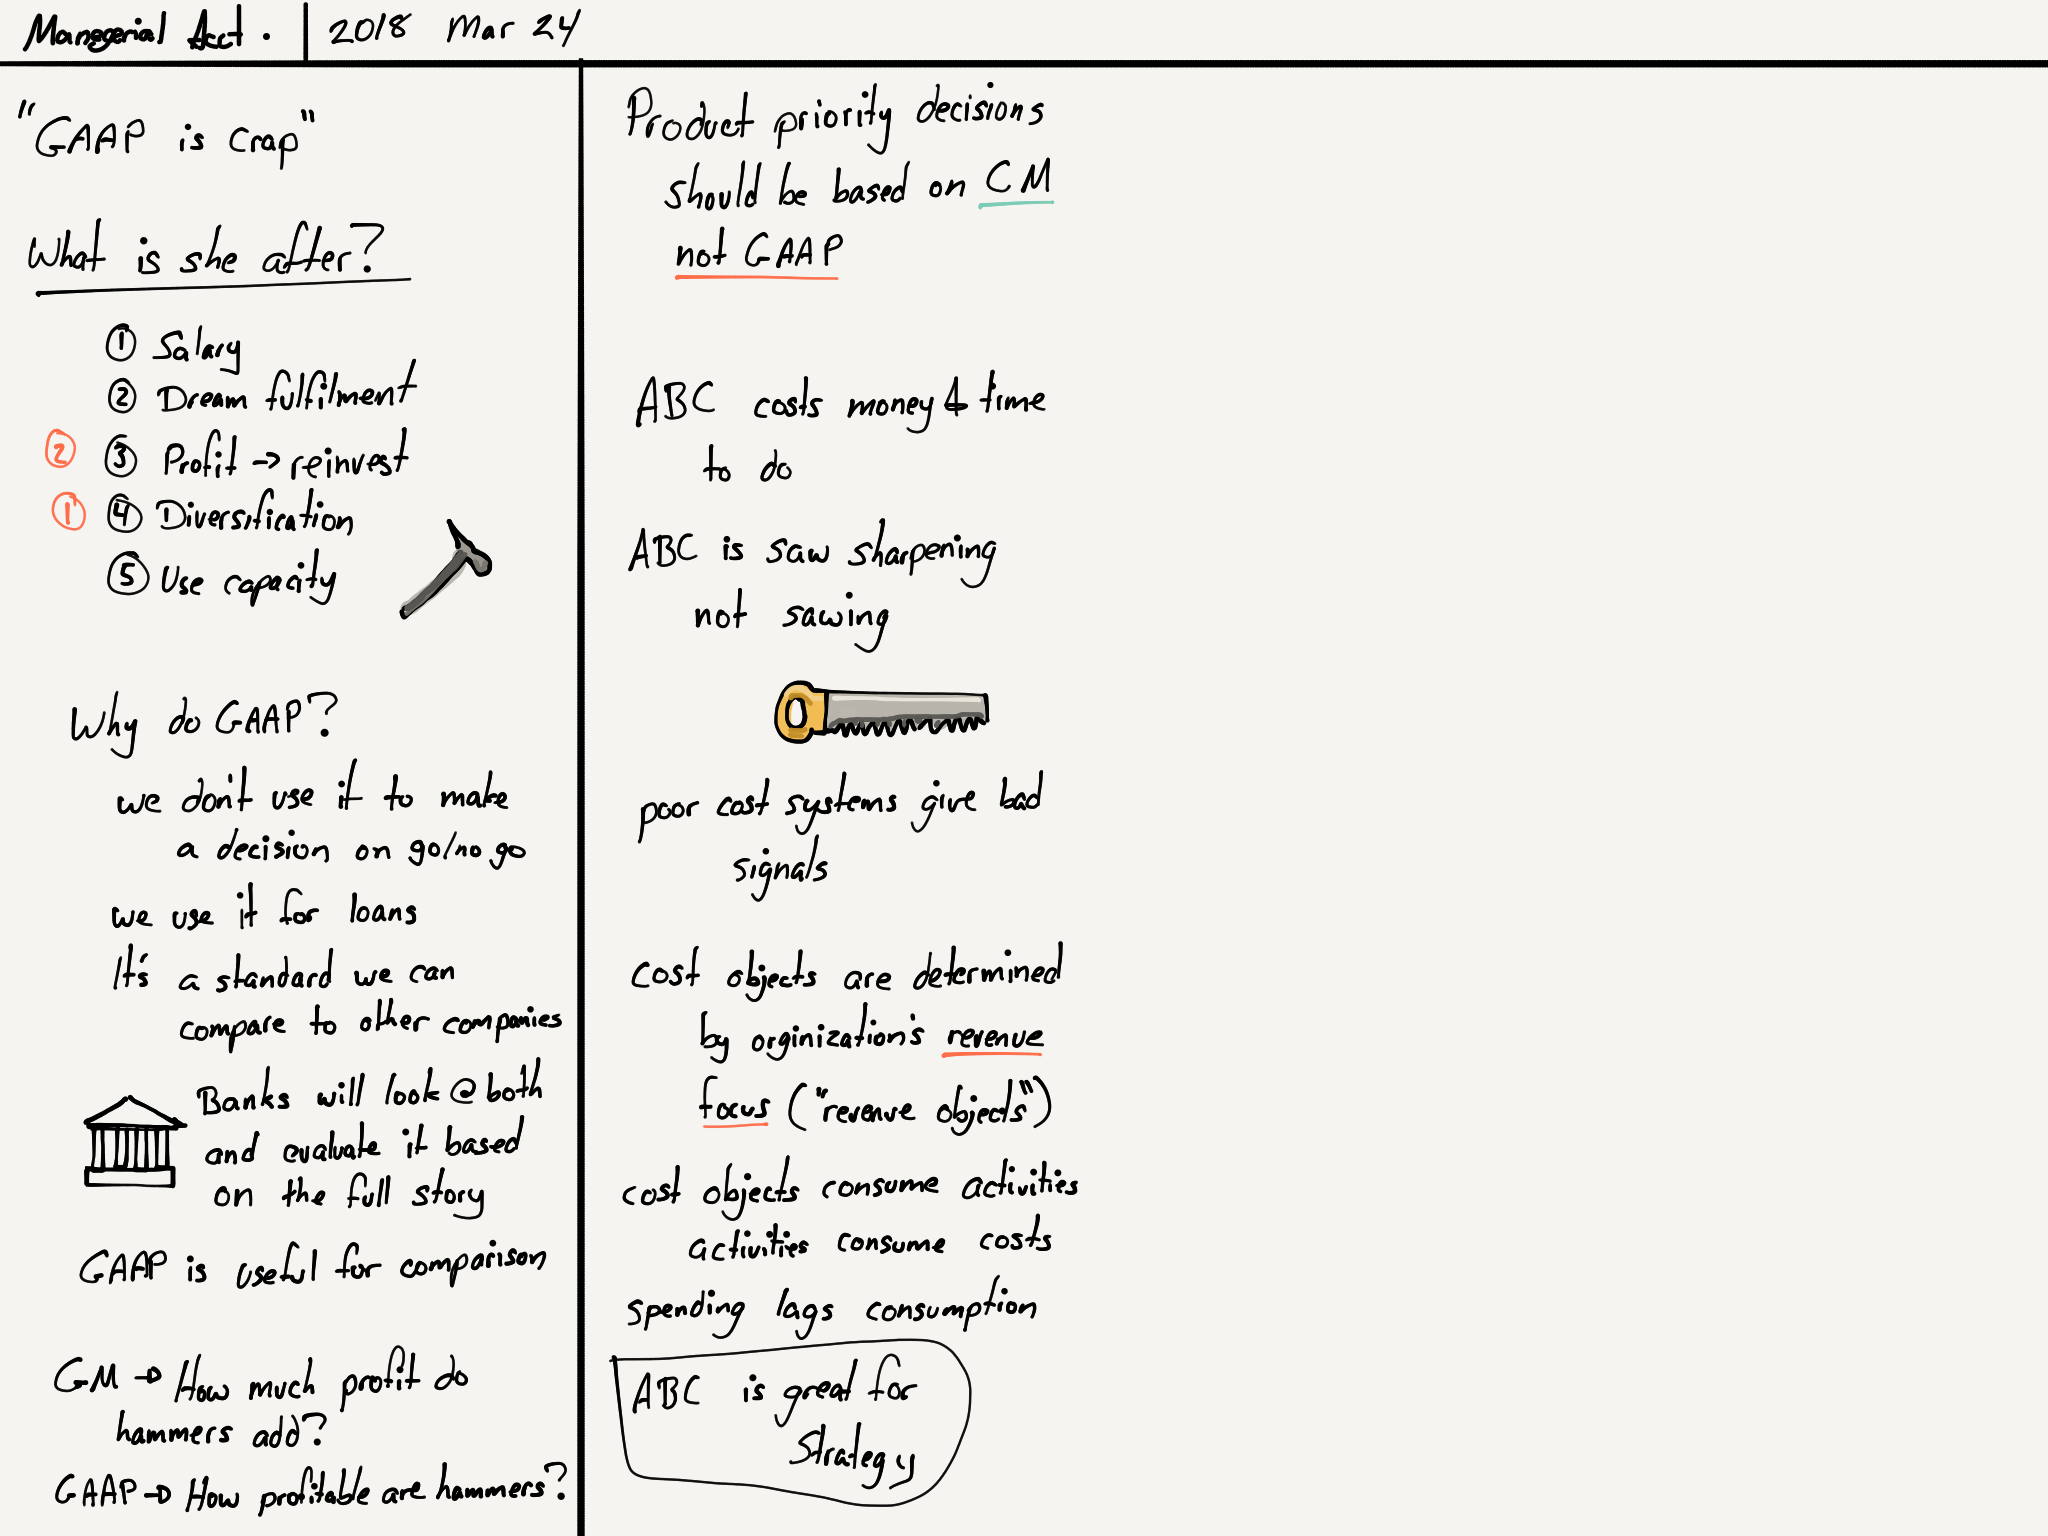 Manegerial Acct. 2018 Mar 24
"GAAP is crap"
What is she after?
① Salary
② Dream fulfilment
② ③ Profit → reinvest
① ④ Diversification
⑤ Use capacity
Why do GAAP?
we don't use it to make
a decision on go/no go
we use it for loans
It's a standard we can
compare to other companies
Banks will look @ both
and evaluate it based
on the full story
GAAP is useful for comparison
GM → How much profit do
hammers add?
GAAP → How profitable are hammers?
Product priority decisions
should be based on CM
not GAAP
ABC costs money & time
to do
ABC is saw sharpening
not sawing
poor cost systems give bad
signals
cost objects are determined
by orginization's revenue
focus ("revenue objects")
cost objects consume activities
activities consume costs
spending lags consumption
ABC is great for
Strategy